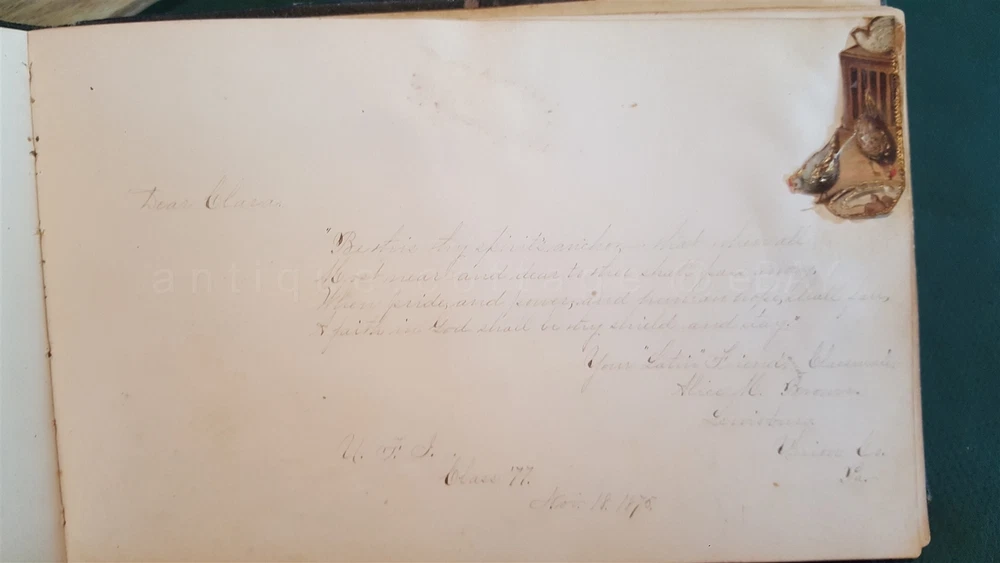 Dear Clara
"Be this thy spirit's anchor, that when all
Most near and dear to thee shall pass away
When pride, and power, and human hope, shall
faith in God shall be thy shield and stay."
Your "Latin" Friend & Classmate,
Alice M.
Lewisburg
Union Co.
Pa.
U. F. I.
Class '77.
Nov. 18. 187
antiq © e